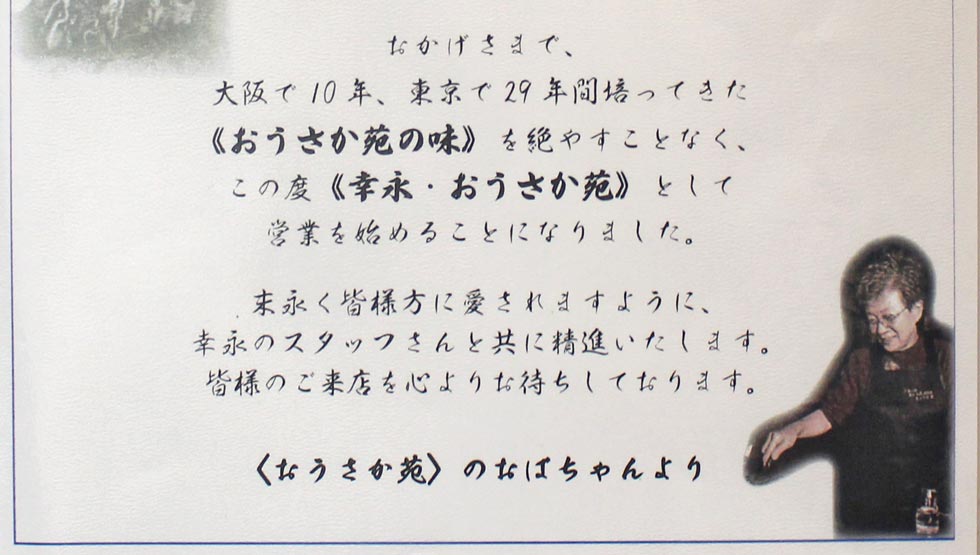 おかげさまで、
大阪で10年、東京で29年間培ってきた
《おうさか苑の味》を絶やすことなく、
この度《幸永・おうさか苑》として
営業を始めることになりました。
末永く皆様方に愛されますように、
幸永のスタッフさんと共に精進いたします。
皆様のご来店を心よりお待ちしております。
〈おうさか苑〉のおばちゃんより